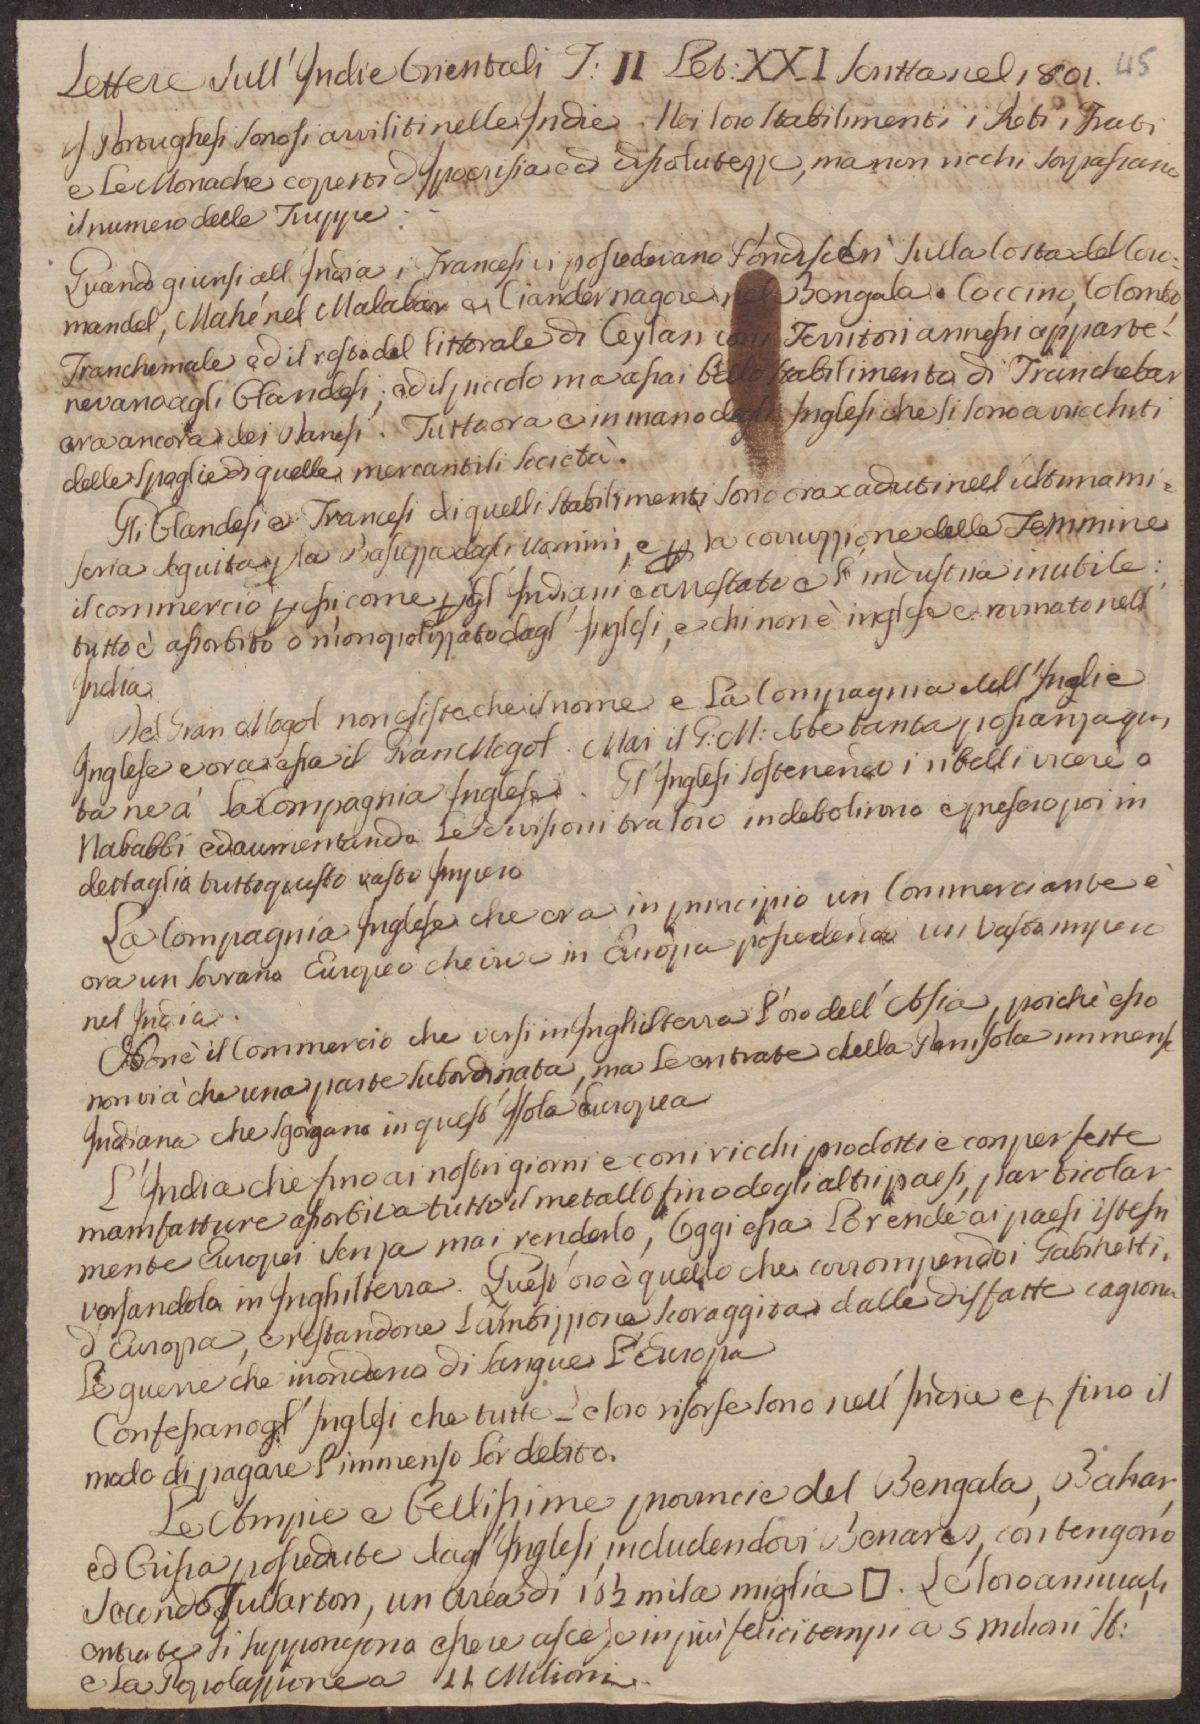 Lettere sull'Indie Orientali T: II Let: XXI scritta nel 1801. 45
I Portughesi sonosi avviliti nelle Indie. Nei loro stabilimenti i Preti i Frati
e le Monache coperti d'Ipocrisia ed dissolutezze, ma non ricchi sorpassano
il numero delle Truppe.
Quando giunsi all'India i Francesi vi possedevano Pondiscerì sulla Costa del Coro-
mandel, Mahé nel Malabar e Ciandernagore nel Bengala. Coccino, Colombo
Tranchemale ed il resto del littorale di Ceylan coni Territori annessi apparte-
nevano agli Olandesi; ed il piccolo ma assai bello stabilimento di Tranchebar
era ancora dei Danesi. Tutto ora è in mano degli Inglesi che si sono arricchiti
delle spoglie di quelle mercantili società.
Gli Olandesi e Francesi di quelli stabilimenti sono ora caduti nell'ultima mi-
seria seguita p la Bassezza degli Uomini, e p la corruzzione delle Femmine
il commercio p essi come p gl'Indiani è arrestato e l'industria inutile:
tutto è assorbito o monopolizzato dagl'Inglesi, e chi non è inglese è rovinato nell'
India.
Del Gran Mogol non esiste che il nome e La Compagnia dell'Indie
Inglese e ora essa il Gran Mogol. Mai il G: M: ebbe tanta possanza quan
ta ne à la Compagnia Inglese. Gl'Inglesi sostenendo i ribelli vicerè o
Nababbi ed aumentando le divisioni tra loro indebolirono e presero poi in
dettaglio tutto questo vasto Impero
La Compagnia Inglese che era in principio un Commerciante è
ora un sovrano Europeo che vive in Europa possedendo un vasto impero
nel India.
Non è il Commercio che versi in Inghilterra l'oro dell'Asia, poichè esso
non vi à che una parte subordinata, ma le entrate della Penisola immense
Indiana che sgorgano in quest'Isola Europea
L'India che fino ai nostri giorni e coni ricchi prodotti e con perfette
manifatture assorbiva tutto il metallo fino degli altri paesi, particolar
mente Europei senza mai renderlo, Oggi essa lo rende ai paesi istessi
versandolo in Inghilterra. Quest'oro è quello che corrompendo i Gabinetti
d'Europa, e restandone l'ambizzione scoraggita dalle disfatte cagiona
le guerre che inondano di sangue l'Europa
Confessano gl'Inglesi che tutte le loro risorse sono nell'India e p fino il
modo di pagare l'immenso lor debito.
Le Ampie e bellissime provincie del Bengala, Bahar,
ed Orissa possedute dagl'Inglesi includendovi Benares, contengono
secondo Fullarton, un area di 162 mila miglia □. Le loro annuali
entrate si suppongono essere ascese in più felici tempi a 5 milioni St:
e la Popolazzione a 11 Milioni.